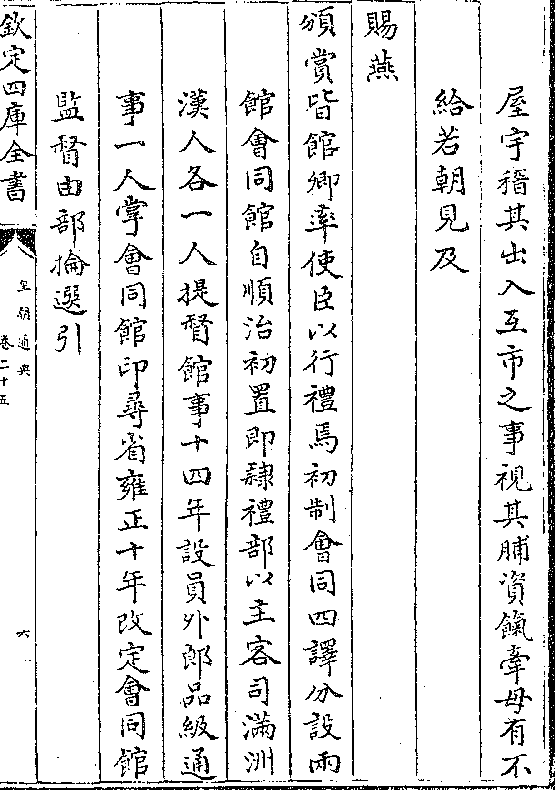 屋宇稽其出入互市之事視其脯資餼牽毋有不
給若朝見及
賜燕
頒賞皆館卿率使臣以行禮焉初制會同四譯分設兩
館會同館自順治初置即隸禮部以主客司滿洲
漢人各一人提督館事十四年設員外郎品級通
事一人掌會同館印尋省雍正十年改定會同館
監督由部掄選引
欽定四庫全書
皇朝通典
卷二十五
六